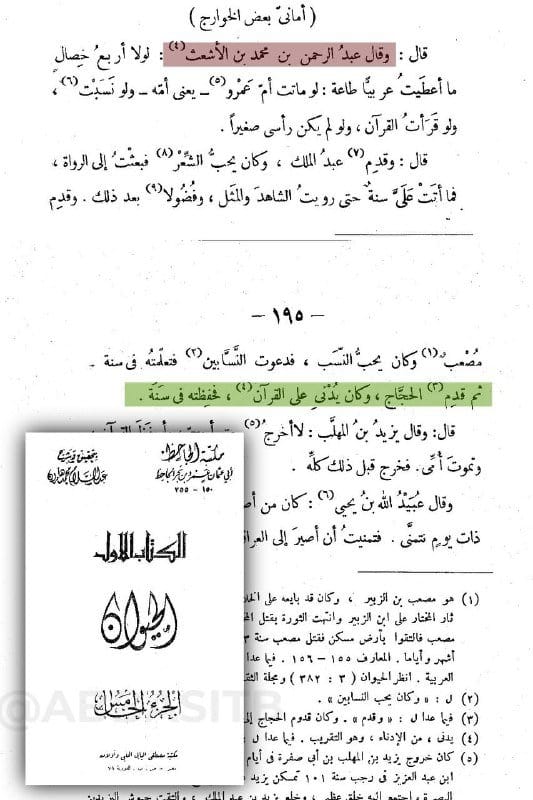 ( أمانىّ بعض الخوارج )
قال : وقال عبدُ الرحمن بن محمد بن الأشعث (٤) : لولا أربعُ خِصالٍ
ما أعطَيتُ عربيًّا طاعة : لو ماتت أمّ عَمْرٍو (٥) ــ يعنى أمّه ــ ولو نَسَبْت (٦) ،
ولو قَرَأتُ القرآن ، ولو لم يكن رأسى صغيراً .
قال : وقدِم (٧) عبدُ الملك ، وكان يحبُّ الشِّعْر (٨) فبعثْتُ إلى الرواة ،
فما أتَتْ عَلَىَّ سنةٌ حتى رويتُ الشاهدَ والمثَل ، وفُضُولا (٩) بعد ذلك . وقدِم
– ١٩٥ –
مُصْعبٌ (١) وكان يحبُّ النَّسَب ، فدعوت النَّسَّابين (٢) فتعلّمتُه فى سنة .
ثم قدِم (٣) الحجَّاج ، وكان يُدْنِى على القرآن (٤) ، فحَفِظته فى سَنَة .
قال : وقال يزيدُ بنُ المهلَّب : لا أخرجُ (٥)
وتموتَ أُمِّى . فخرج قبل ذلك كلِّه .
وقال عُبَيْدُ الله بنُ يحيى (٦) : كان من أص
ذاتَ يومٍ نتمنَّى . فتمنيتُ أن أصيرَ إلى العراق
(١) هو مصعب بن الزبير ، وكان قد بايعه على
ثار المختار على ابن الزبير وانتهت الثورة بقتل
مصعب فالتقوا بأرض مسكن فقتل مصعب سنة
أشهر وأياما . المعارف ١٥٥ – ١٥٦ . فيما عدا
العربية . انظر الحيوان ( ٣ : ٣٨٢ ) ومجلة
(٢) ل : « وكان يحب النسابين » .
(٣) فيما عدا ل : « وقدم » . وكان قدوم الحجاج
(٤) يدنى ، من الإدناء ، وهو التقريب . فيما عدا ل
(٥) كان خروج يزيد بن المهلب بن أبى صفرة فى أيام
ابن عبد العزيز فى رجب سنة ١٠١ تمكن يزيد
مكتبة الجاحظ
أبى عثمان عمرو بن بحر الجاحظ
١٥٠ – ٢٥٥
بتحقيق وشرح
عبد السلام محمد هارون
الكتاب الأول
الحيوان
الجزء الخامس
مكتبة مصطفى البابى الحلبى وأولاده